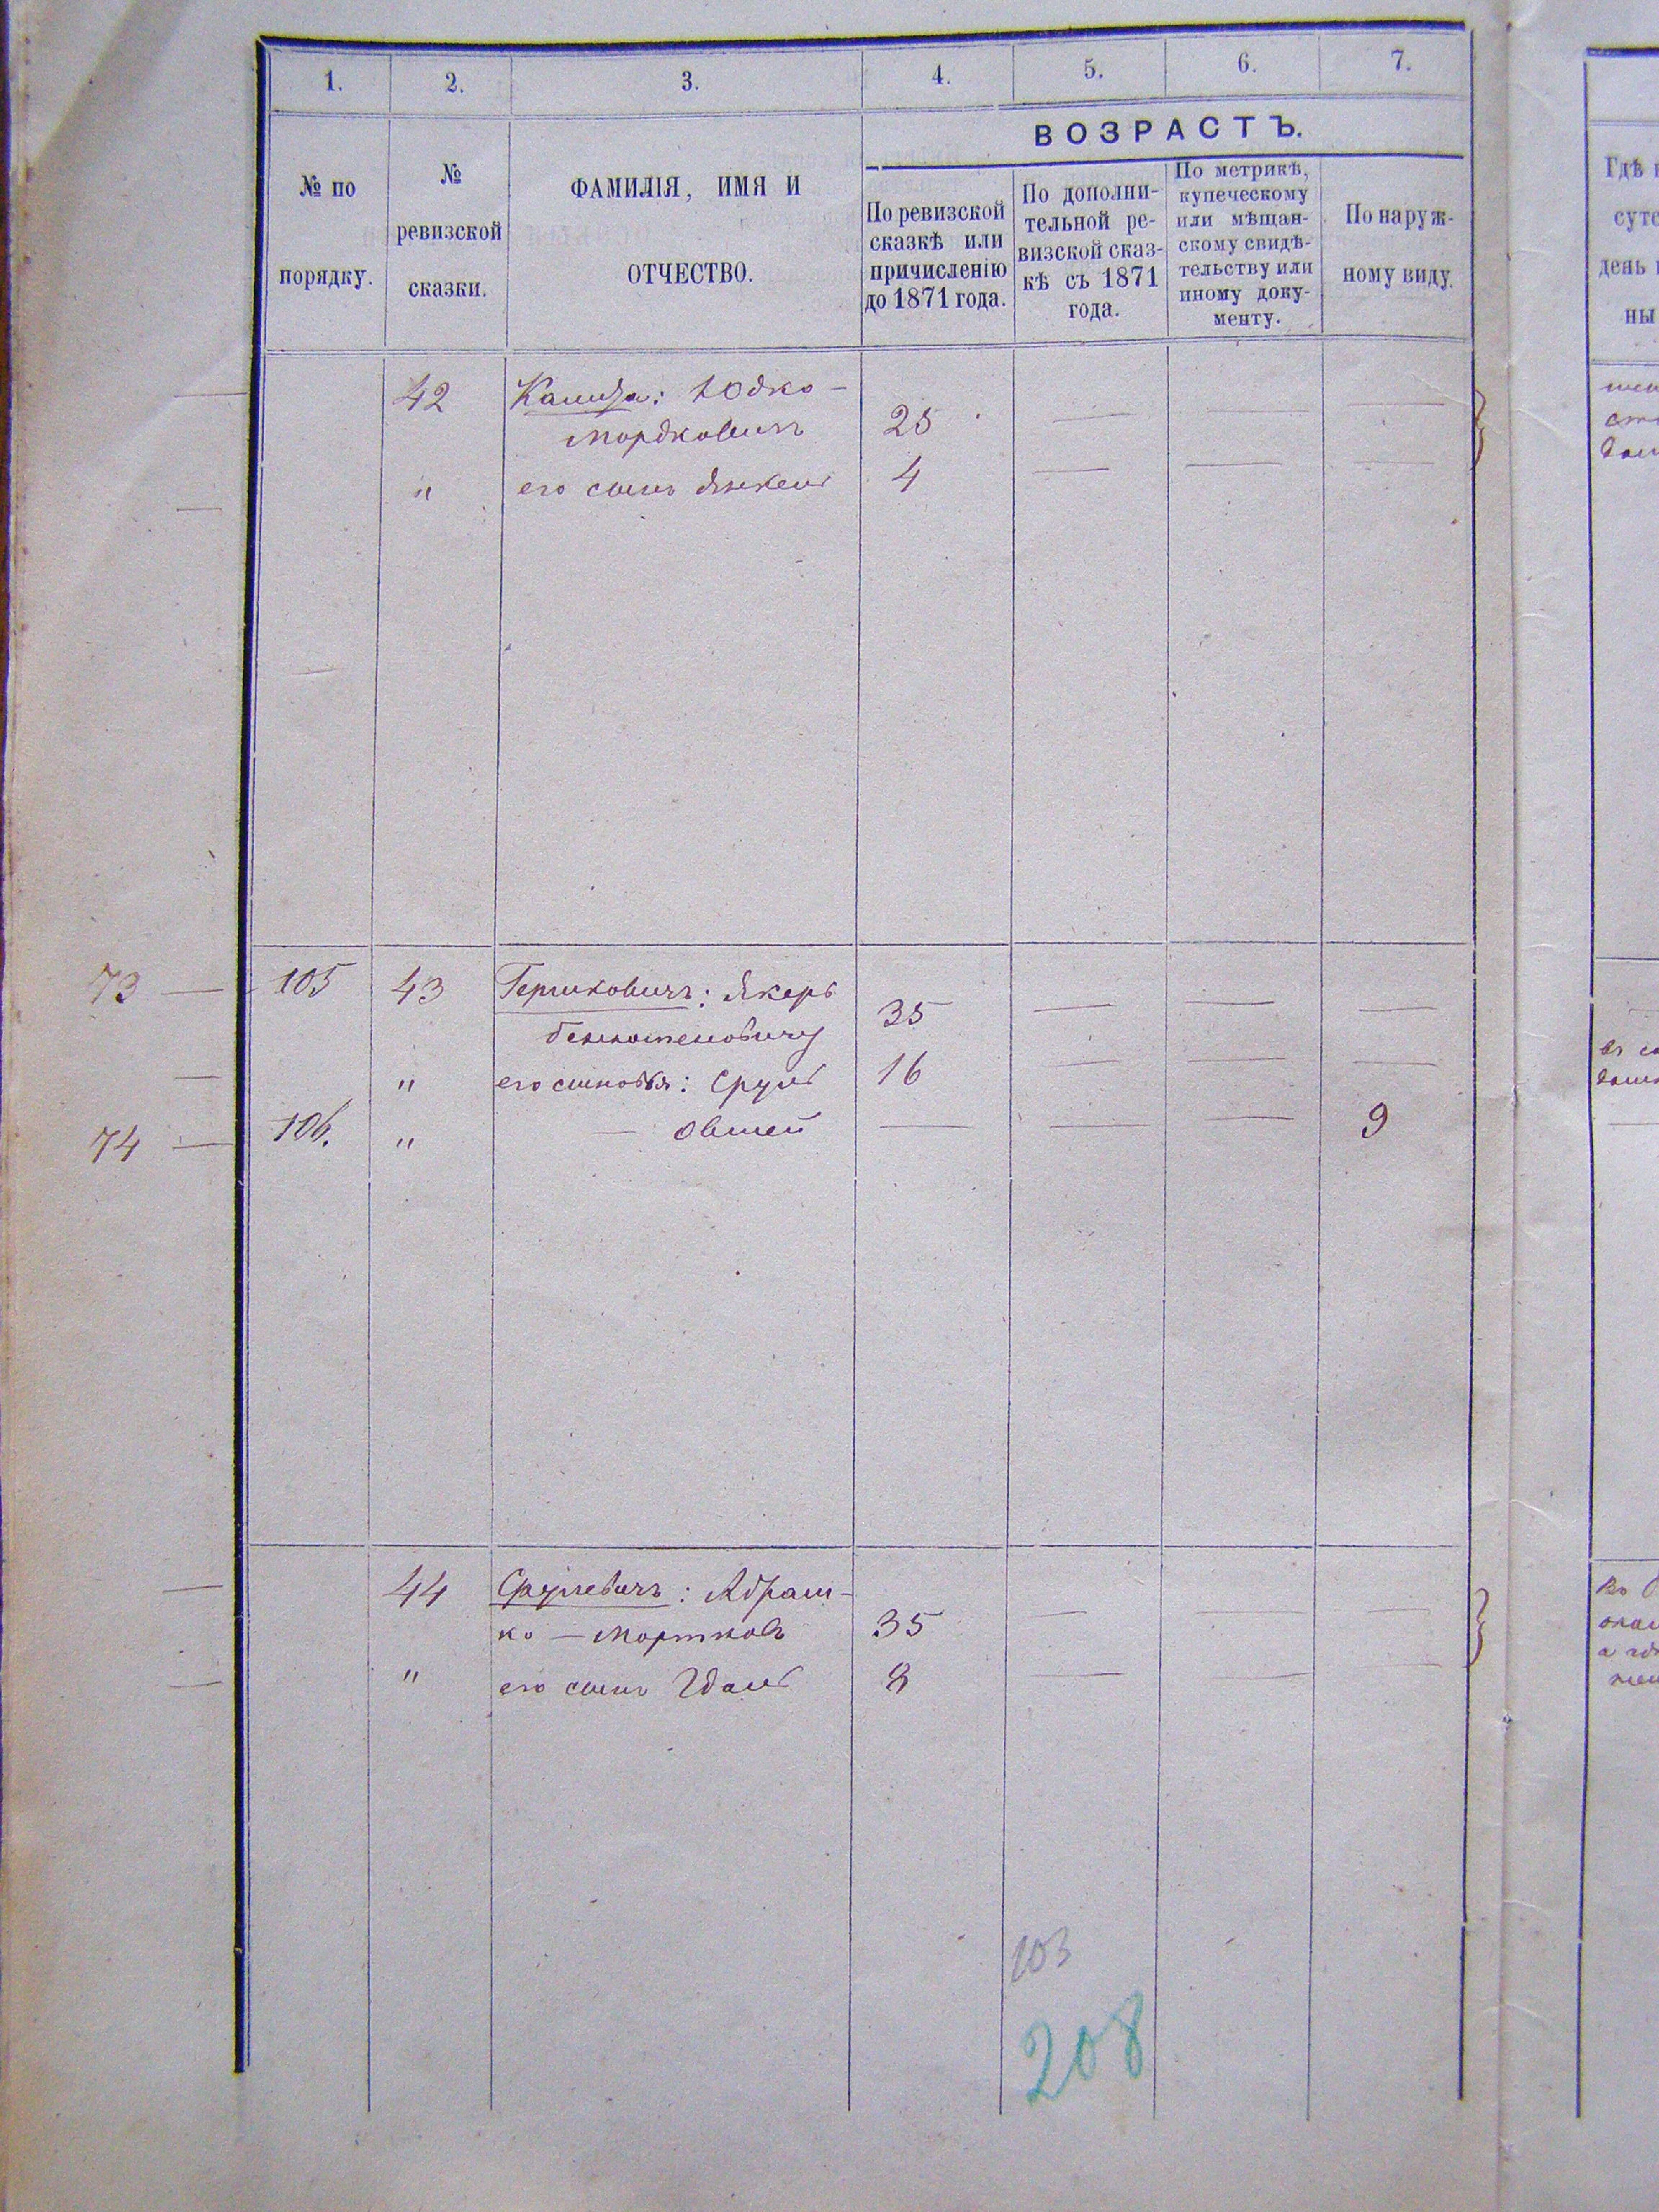 1. 2. 3. 4. 5. 6. 7.
№ по порядку.
№ ревизской сказки.
ФАМИЛІЯ, ИМЯ И
ОТЧЕСТВО.
ВОЗРАСТЪ.
По ревизской
сказкѣ или
причисленію
до 1871 года.
По дополни-
тельной ре-
визской сказ-
кѣ съ 1871
года.
По метрикѣ,
купеческому
или мѣщан-
скому свидѣ-
тельству или
иному доку-
менту.
По наруж-
ному виду.
Гдѣ
сутс
день
ны
42 Юдко -
Мордковичъ 25 — — —
" его сынъ Янкель 4 — — —
73 — 105 43 Гершковичъ: Якерь
35 — — —
— " его сыновья: Сруль 16 — — —
74 — 106. " — Овшей — — — 9
44 Срулевичъ: Абраш-
ко — Мортковъ 35 — — —
" его сынъ Гдаль 8 — — —
103
208